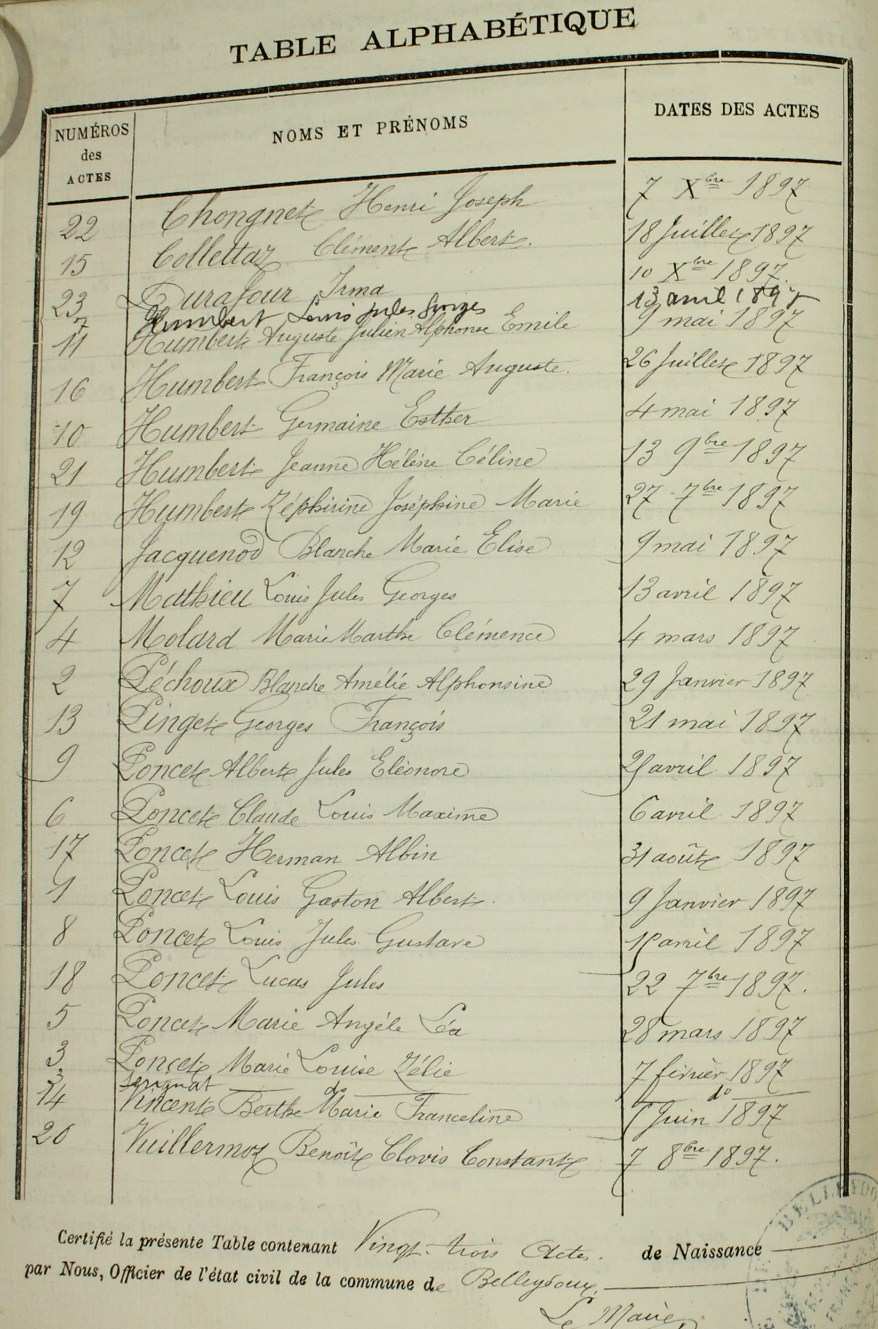 TABLE ALPHABÉTIQUE
NUMÉROS des ACTES NOMS ET PRÉNOMS DATES DES ACTES
22 Chongnet Henri Joseph 7 Xbre 1897
15 Collettaz Clément Albert. 18 Juillet 1897
23 Durafour Irma 10 Xbre 1897.
7 Humbert Louis Jules Georges 13 avril 1897
11 Humbert Auguste Julien Alphonse Emile 9 mai 1897
16 Humbert François Marie Auguste. 26 Juillet 1897
10 Humbert Germaine Esther 4 mai 1897
21 Humbert Jeanne Hélène Céline 13 9bre 1897
19 Humbert Zéphirine Joséphine Marie 27 7bre 1897
12 Jacquenod Blanche Marie Elise 9 mai 1897
7 Mathieu Louis Jules Georges 13 avril 1897
4 Molard Marie Marthe Clémence 4 mars 1897
2 Péchoux Blanche Amélie Alphonsine 29 Janvier 1897
13 Pinget Georges François 21 mai 1897
9 Poncet Albert Jules Eléonore avril 1897
6 Poncet Claude Louis Maxime 6 avril 1897
17 Poncet Herman Albin 31 août 1897
1 Poncet Louis Gaston Albert. 9 Janvier 1897
8 Poncet Louis Jules Gustave 15 avril 1897
18 Poncet Lucas Jules 22 7bre 1897.
5 Poncet Marie Angéle Léa 28 mars 1897
3 Poncet Marie Louise Zélie 7 février 1897
3 Serignat do do
14 Vincent Berthe Marie Franceline Juin 1897
20 Vuillermoz Benoît Clovis Constant 7 8bre 1897.
Certifié la présente Table contenant Vingt-trois Actes. de Naissance
par Nous, Officier de l'état civil de la commune de Belleydoux.
Le Maire,